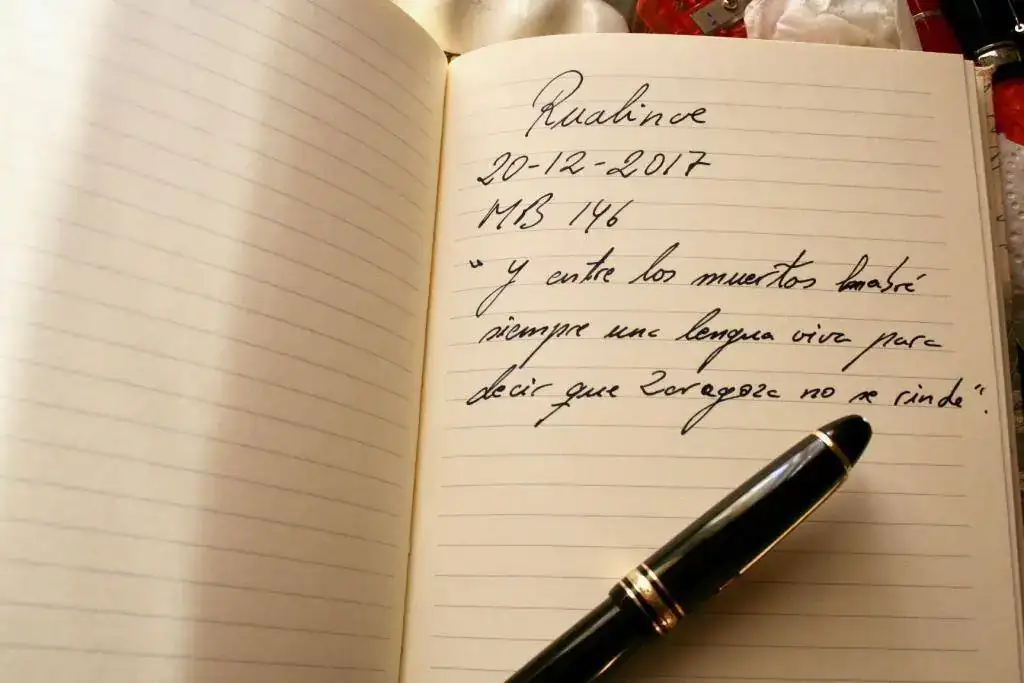 Rualinve
20-12-2017
MB 146
“ Y entre los muertos habrá
siempre una lengua viva para
decir que Zaragoza no se rinde”.